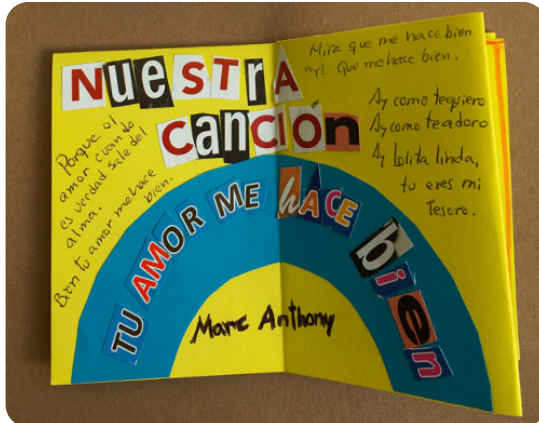 NUeStrA
canciÓn
Porque el
amor cuando
es verdad sale del
alma.
Bien tu amor me hace
bien.
Mira que me hace bien
ay! Que me hace bien.
Ay como tequiero
Ay como teadoro
Ay Lolita linda,
tu eres mi
Tesoro.
TU AMOR ME hACE bien
Marc Anthony